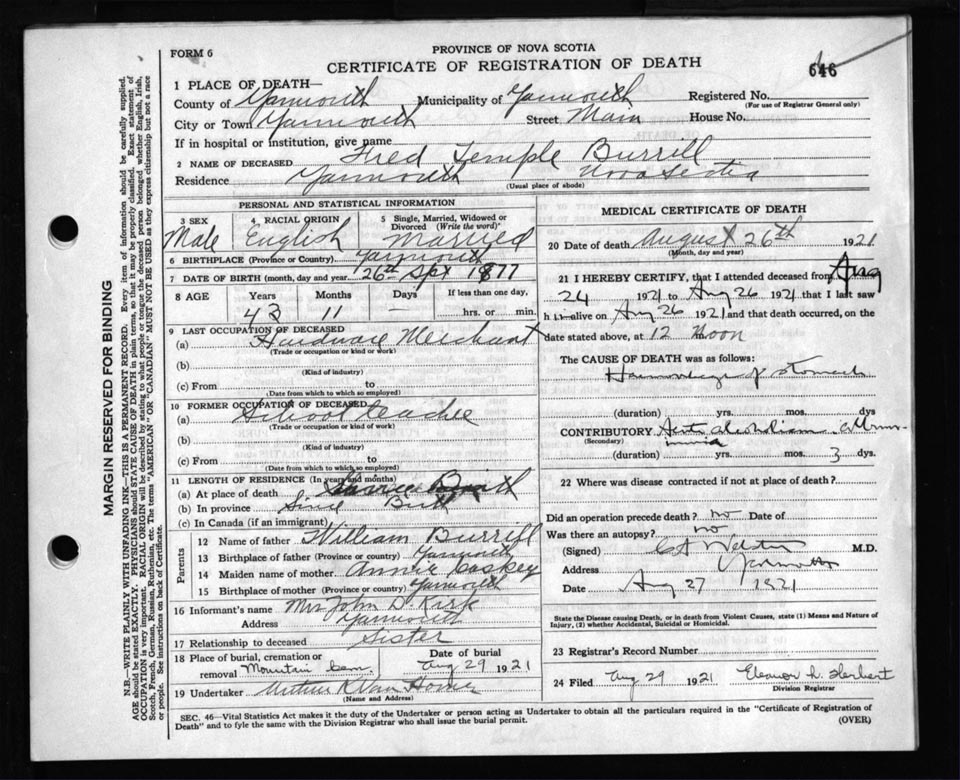 PROVINCE OF NOVA SCOTIA
FORM 6
CERTIFICATE OF REGISTRATION OF DEATH
646
1 PLACE OF DEATH—
County of Yarmouth Municipality of Yarmouth Registered No.
(For use of Registrar General only)
City or Town Yarmouth Street Main House No.
If in hospital or institution, give name
2 NAME OF DECEASED Fred Temple Burrill
Residence Yarmouth Nova Scotia
(Usual place of abode)
PERSONAL AND STATISTICAL INFORMATION
3 SEX 4 RACIAL ORIGIN 5 Single, Married, Widowed or Divorced (Write the word)
Male English Married
6 BIRTHPLACE (Province or Country) Yarmouth
7 DATE OF BIRTH (month, day and year) 26th Sept 1877
8 AGE Years Months Days If less than one day,
43 11 – hrs. or min.
9 LAST OCCUPATION OF DECEASED
(a) Hardware Merchant
(Trade or occupation or kind or work)
(b)
(Kind of industry)
(c) From to
(Date from which to which so employed)
10 FORMER OCCUPATION OF DECEASED
(a) School teacher
(Trade or occupation or kind of work)
(b)
(Kind of industry)
(c) From to
(Date from which to which so employed)
11 LENGTH OF RESIDENCE (In years and months)
(a) At place of death
(b) In province Since Birth
(c) In Canada (if an immigrant)
Parents
12 Name of father William Burrill
13 Birthplace of father (Province or country) Yarmouth
14 Maiden name of mother Annie Caskey
15 Birthplace of mother (Province or country) Yarmouth
16 Informant's name Mrs John D. Kirk
Address Yarmouth
17 Relationship to deceased Sister
18 Place of burial, cremation or removal Mountain Cem. Date of burial Aug 29 1921
19 Undertaker Arthur K Van Horne
(Name and Address)
MEDICAL CERTIFICATE OF DEATH
20 Date of death August 26th 1921
(Month, day and year)
21 I HEREBY CERTIFY, that I attended deceased from Aug
24 1921 to Aug 26 1921 that I last saw
h im alive on Aug 26 1921 and that death occurred, on
date stated above, at 12 Noon
The CAUSE OF DEATH was as follows:
Haemorrhage of stomach
(duration) yrs. mos. dys
CONTRIBUTORY Acute alcoholism Albumin-
(Secondary) uria
(duration) yrs. mos. 3 dys.
22 Where was disease contracted if not at place of death?
Did an operation precede death? no Date of
Was there an autopsy? no
(Signed) Webster M.D.
Address Yarmouth
Date Aug 27 1921
State the Disease causing Death, or in death from Violent Causes, state (1) Means and Nature of
Injury, (2) whether Accidental, Suicidal or Homicidal.
23 Registrar's Record Number
24 Filed Aug 29 1921 Eleanor L. Herbert
Division Registrar
SEC. 46—Vital Statistics Act makes it the duty of the Undertaker or person acting as Undertaker to obtain all the particulars required in the "Certificate of Registration of
Death" and to fyle the same with the Division Registrar who shall issue the burial permit.
(OVER)
MARGIN RESERVED FOR BINDING
N.B.—WRITE PLAINLY WITH UNFADING INK—THIS IS A PERMANENT RECORD. Every item of information should be carefully supplied.
AGE should be stated EXACTLY. PHYSICIANS should STATE CAUSE OF DEATH in plain terms, so that it may be properly classified. Exact statement of
OCCUPATION is very important. RACIAL ORIGIN will be described by stating to what people or tongue the deceased person belonged whether English, Irish,
Scotch, French, German, Russian, Ruthenian, etc. The terms "AMERICAN" OR "CANADIAN" MUST NOT BE USED as they express citizenship but not a race
or people. See instructions on back of Certificate.